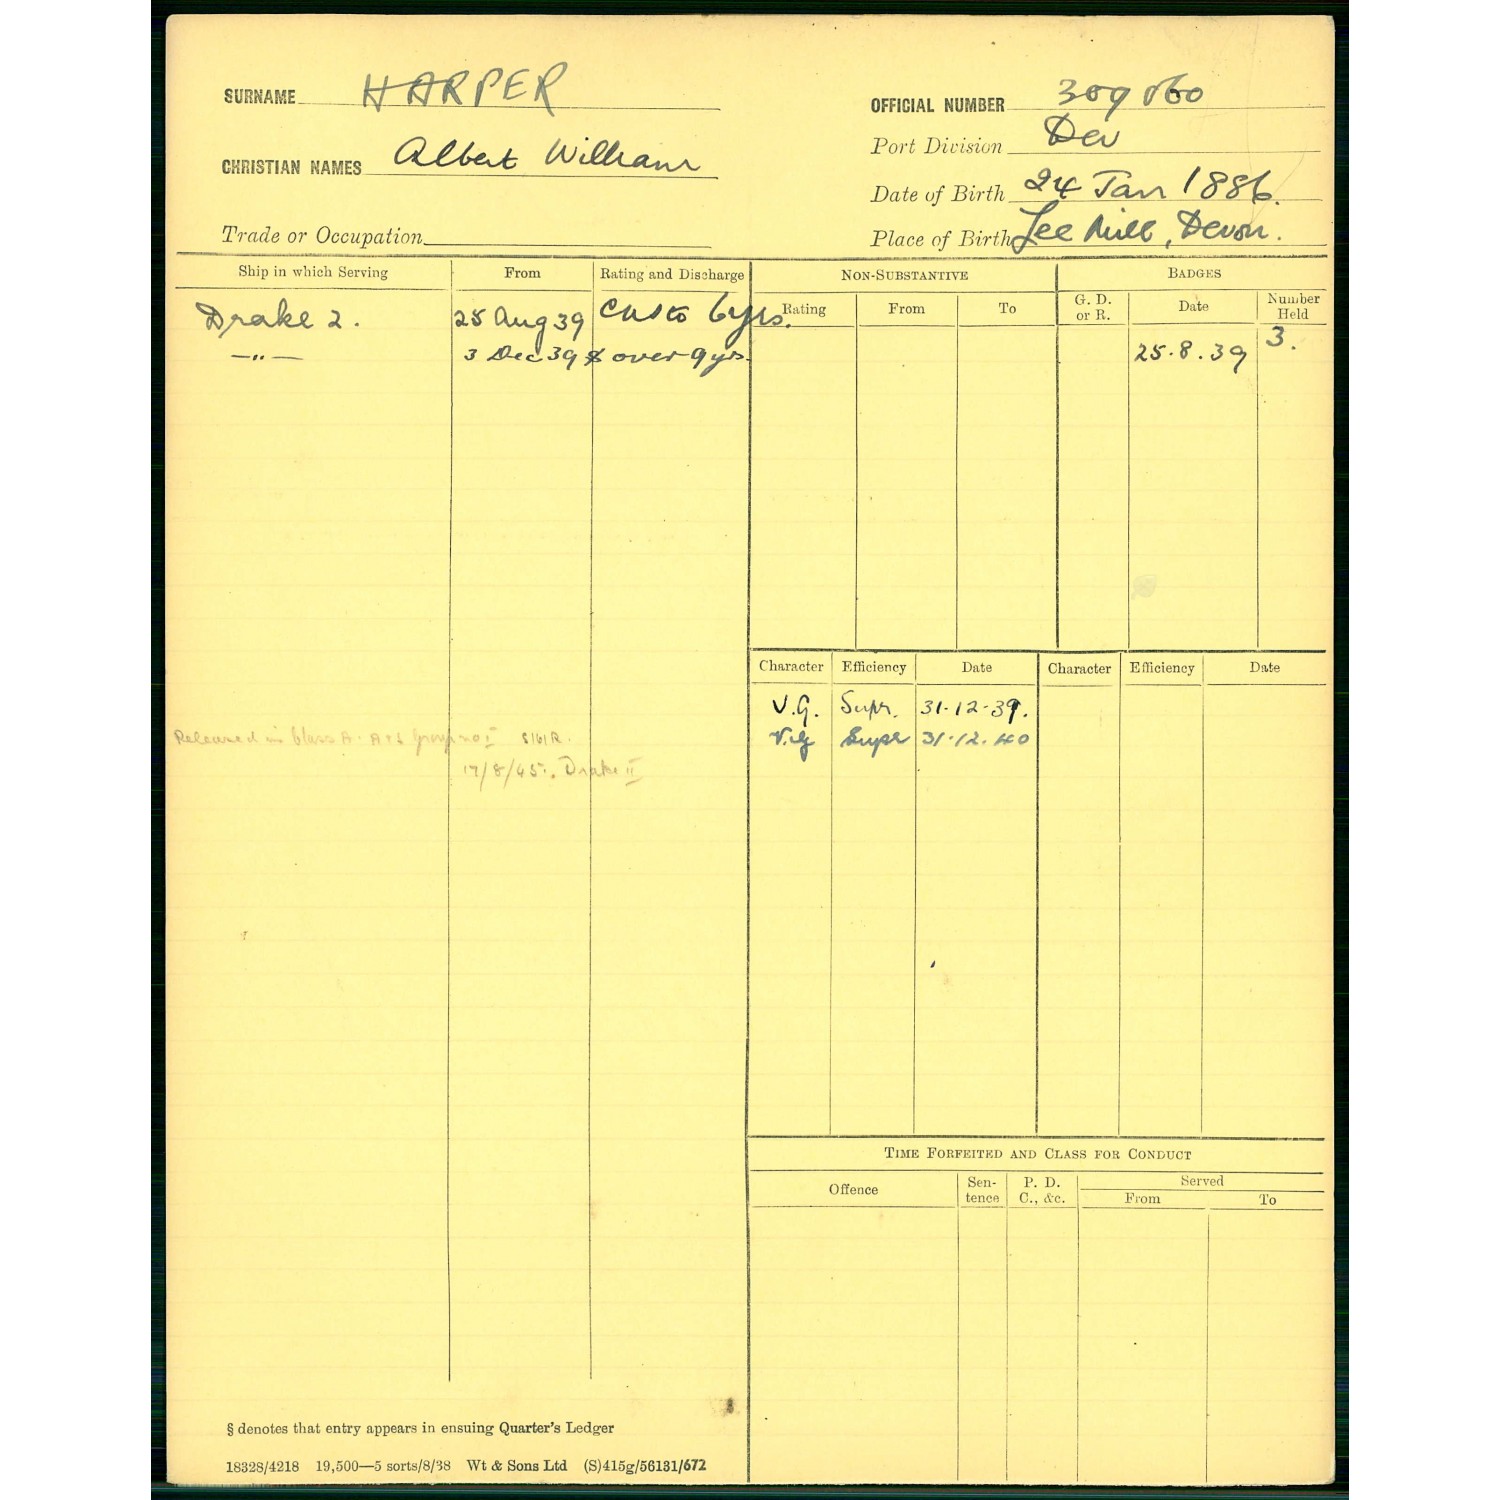 SURNAME HARPER
OFFICIAL NUMBER
CHRISTIAN NAMES Albert William
Port Division Dev
Date of Birth 24 Jan 1886.
Trade or Occupation
Place of Birth Lee Mill, Devon.
Ship in which Serving From Rating and Discharge NON-SUBSTANTIVE BADGES
Rating From To G. D. or R. Date Number Held
Drake 2. 25 Aug 39 6 yrs.
—"— 3 Dec 39 over 9 yrs. 25.8.39 3.
Character Efficiency Date Character Efficiency Date
V.G. Supr. 31-12-39.
V.G Supr 31.12.40
Released in Class A.
17/8/45. Drake II
TIME FORFEITED AND CLASS FOR CONDUCT
Offence Sen-tence P. D. C., &c. Served
From To
§ denotes that entry appears in ensuing Quarter's Ledger
18328/4218 19,500—5 sorts/8/38 Wt & Sons Ltd (S)415g/56131/672